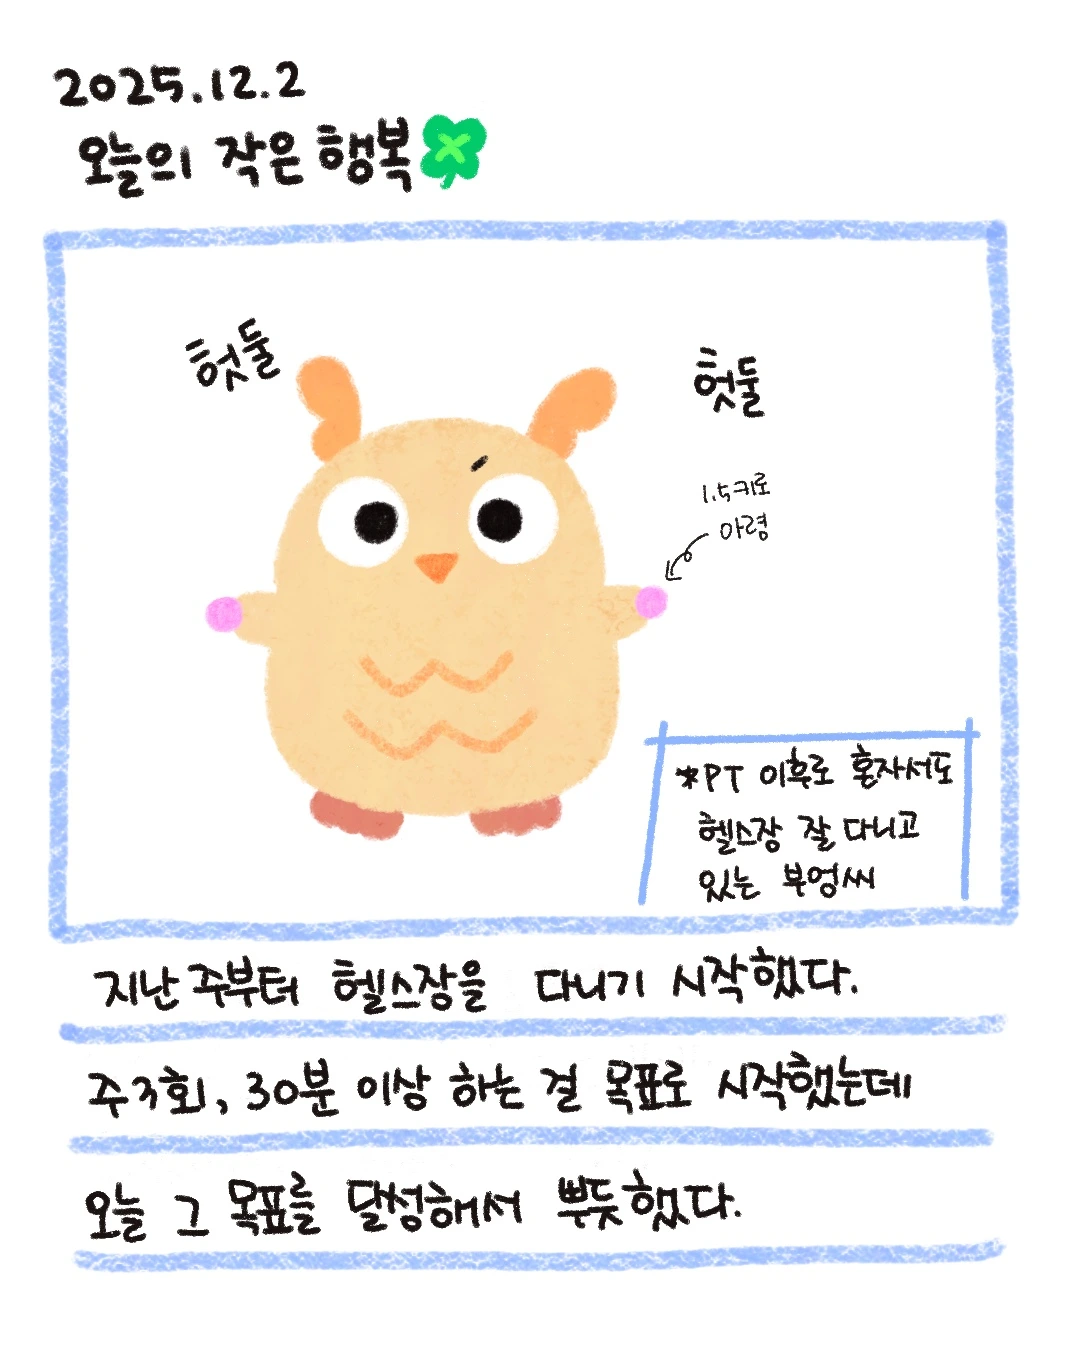 2025.12.2
오늘의 작은 행복
헛둘
헛둘
1.5키로
아령
*PT 이후로 혼자서도
헬스장 잘 다니고
있는 부엉씨
지난 주부터 헬스장을 다니기 시작했다.
주3회, 30분 이상 하는 걸 목표로 시작했는데
오늘 그 목표를 달성해서 뿌듯했다.